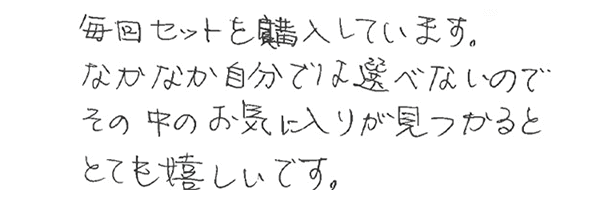 毎回セットを購入しています。
なかなか自分では選べないので
その中のお気に入りが見つかると
とても嬉しいです。